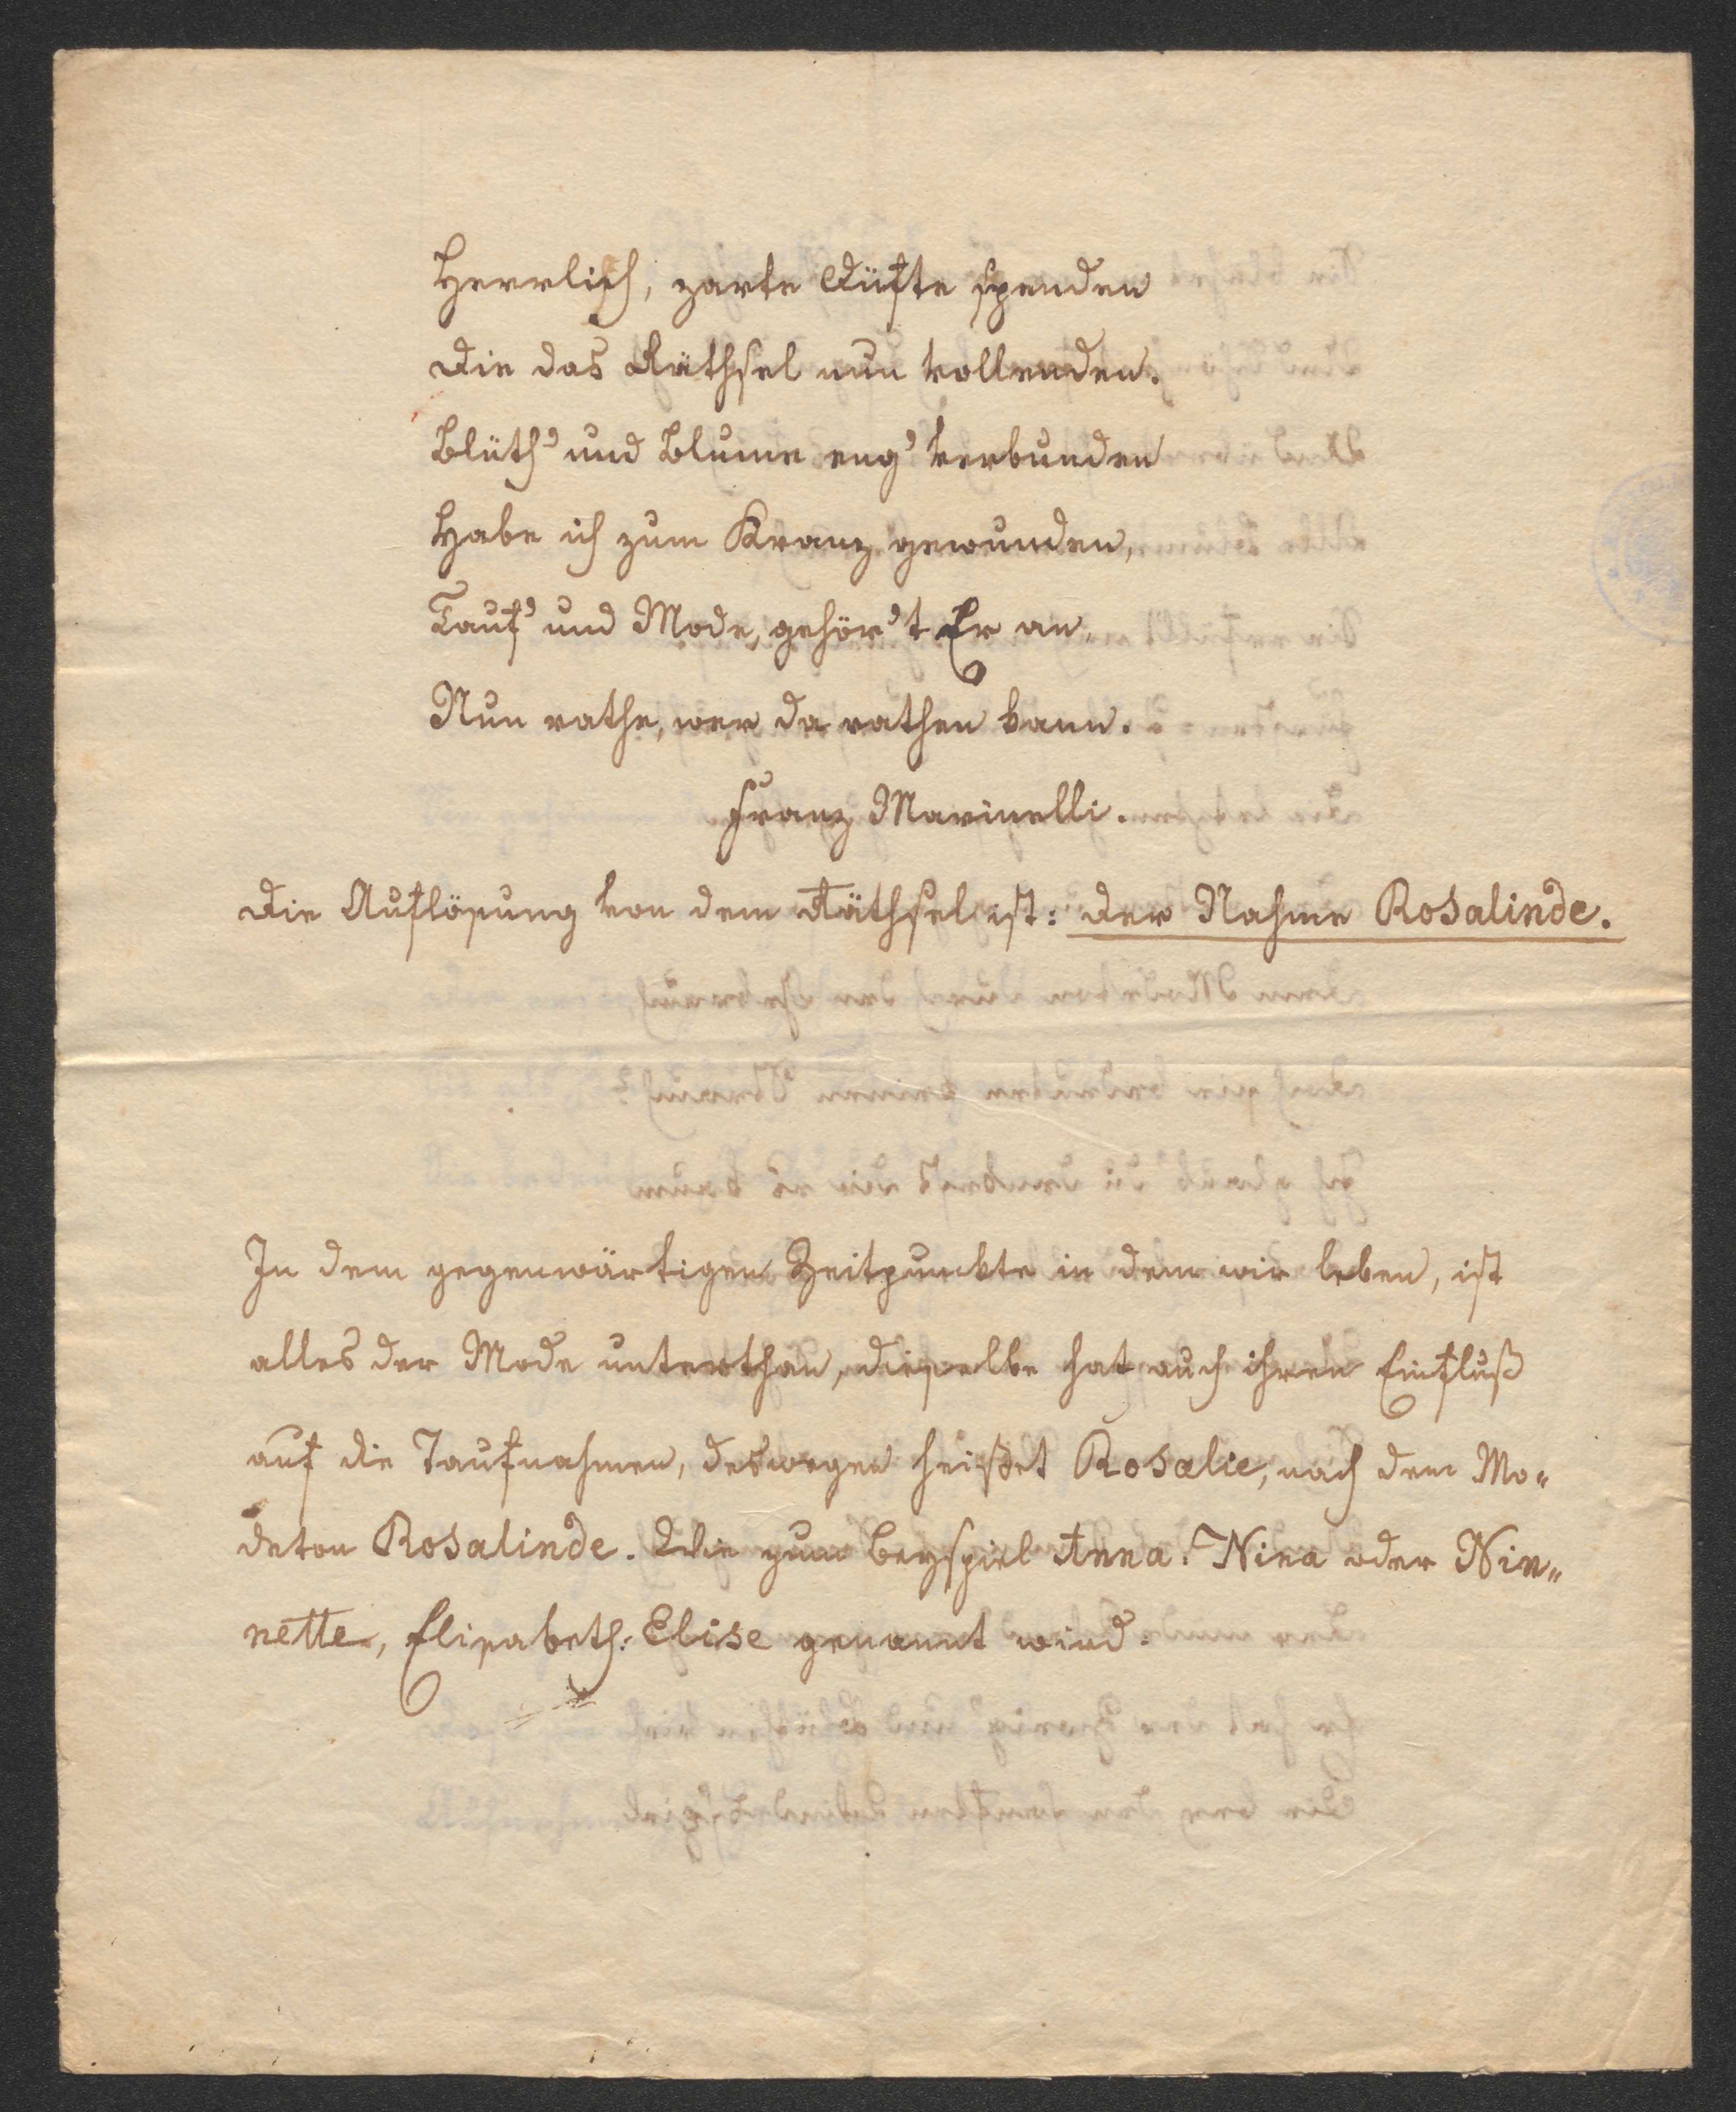 Herrlich, zarte Düfte spenden
Die das Räthsel nun vollenden.
Blüth' und Blume eng' verbunden
Habe ich zum Kranz gewunden,
Tauf' und Mode, gehör't Er an.
Nun rathe, wer da rathen kann.
Franz Marinelli.
Die Auflösung von dem Räthsel ist: Der Nahme Rosalinde.
In dem gegenwärtigen Zeitpunkte in dem wir leben, ist
alles der Mode unterthan, dieselbe hat auch ihren Einfluß
auf die Taufnahmen, deswegen heißet Rosalie, nach dem Mo„
deton Rosalinde. Wie zum Beyspiel Anna: Nina oder Nin„
nette, Elisabeth: Elise genannt wird.